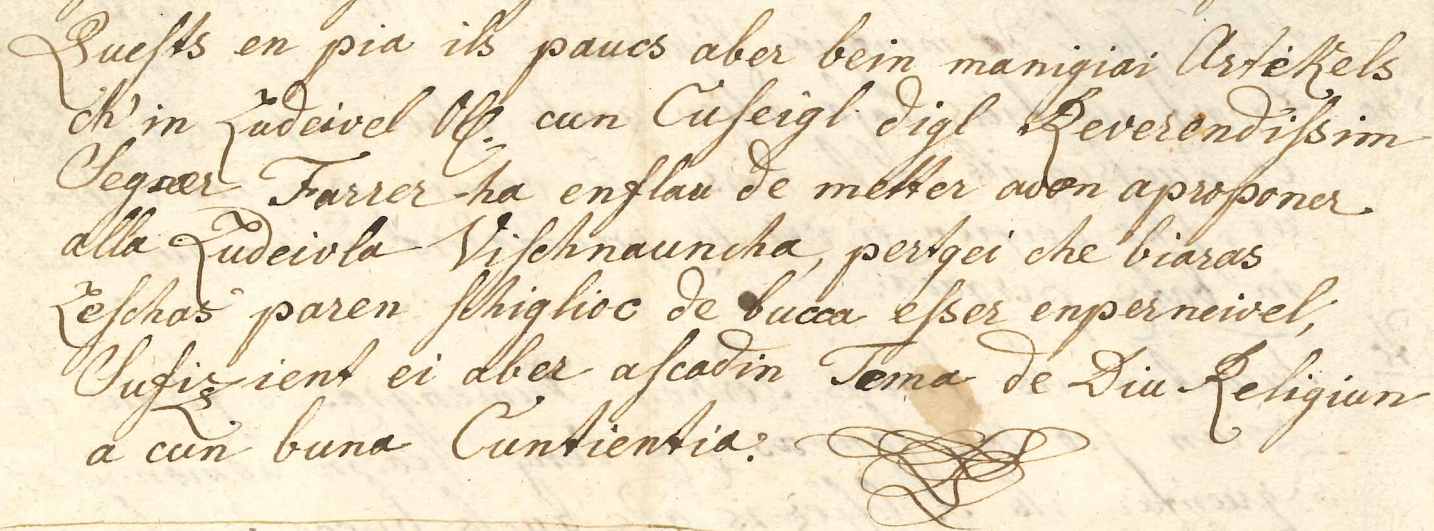 Queſts en pia ils paucs aber bein manigiai Artèkels
ch'in Ludeivel cun Cuſeigl digl Reverendiſsim
Segner Farrer ha enflau de metter avon aproponer
alla Ludeivla Viſchnauncha, pertgei che biaras
Leſchas paren ſchiglioc de bucca eſser enperneivel,
Sufizient ei aber aſcadin Tema de Diu Religiun
a cun buna Cuntientia.